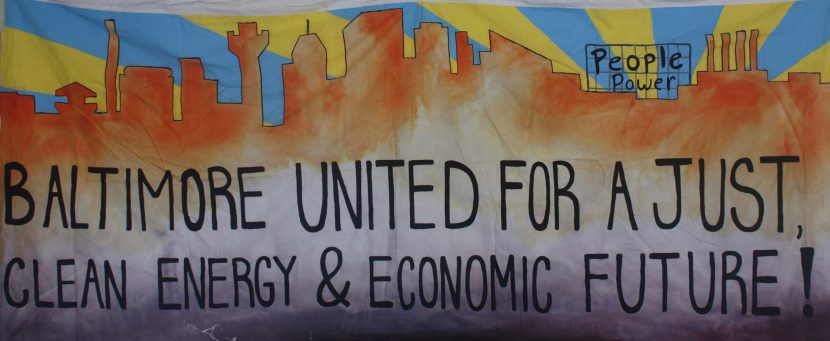 People
Power
BALTIMORE UNITED FOR A JUST,
CLEAN ENERGY & ECONOMIC FUTURE!